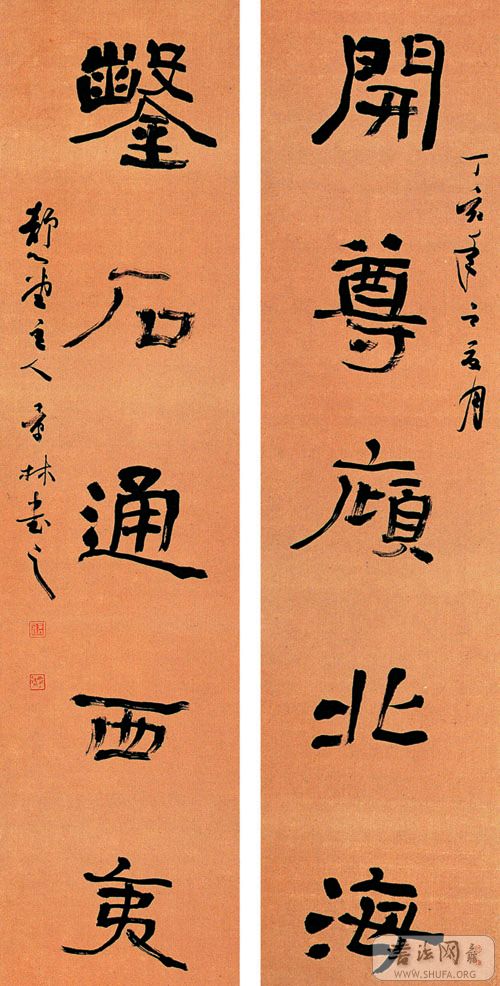 丁亥之夏月
開尊北海
鑿石通西夷
主人林書之
书法网
WWW.SHUFA.ORG